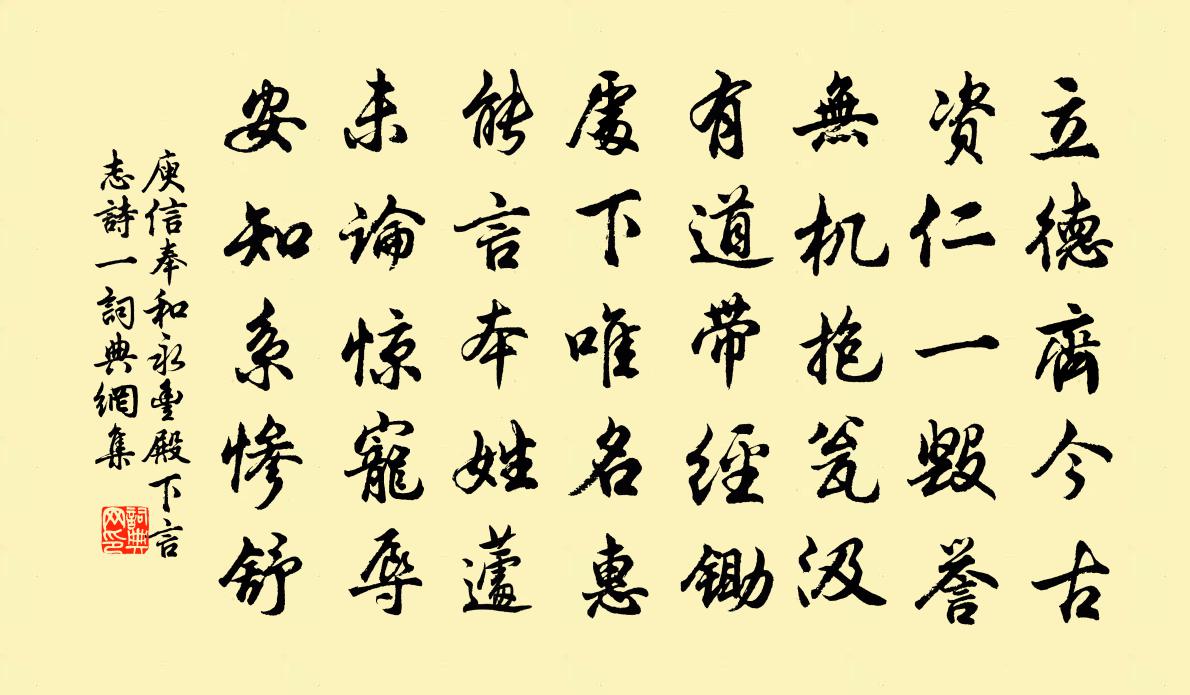 立德齊今古
资仁一毀誉
無机抱瓮汲
有道带經鋤
處下唯名惠
能言本姓蘧
未論惊寵辱
安知系慘舒
庾信奉和永豐殿下言
志詩一詞典網集
詞典
网印